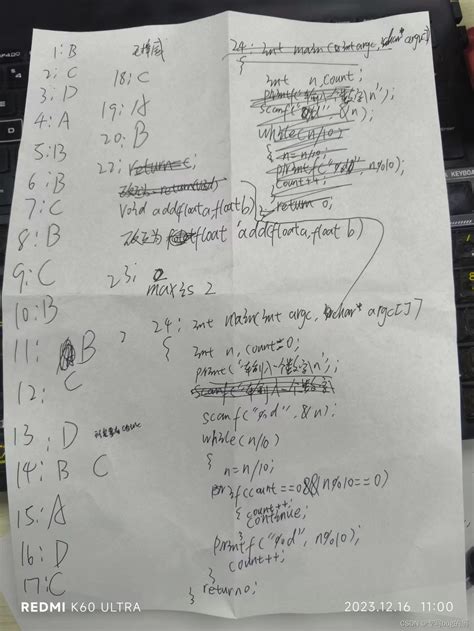 1: B
2: C
3: D
4: A
5: B
6: B
7: C
8: B
9: C
10: B
11: B
12: C
13: D
14: B C
15: A
16: D
17: C
18: C
19: A
20: B
22: return = c;
void add(float a, float b)
改正为 float add(float a, float b)
23: 2
max is 2
24: int main(int argc, char* argc[])
{
int n, count;
printf("输入一个数字\n");
scanf("%d", &n);
while(n/10)
{
n = n/10;
printf("%d", n%10);
count++;
}
return 0;
24: int main(int argc, char* argc[])
{
int n, count=0;
printf("输入一个数字\n");
scanf("输入一个数字
scanf("%d", &n);
while(n/10)
{
n = n/10;
if(count==0&&n%10==0)
{ count++;
continue;
}
printf("%d", n%10);
count++;
}
} return 0;
REDMI K60 ULTRA
2023.12.16 11:00